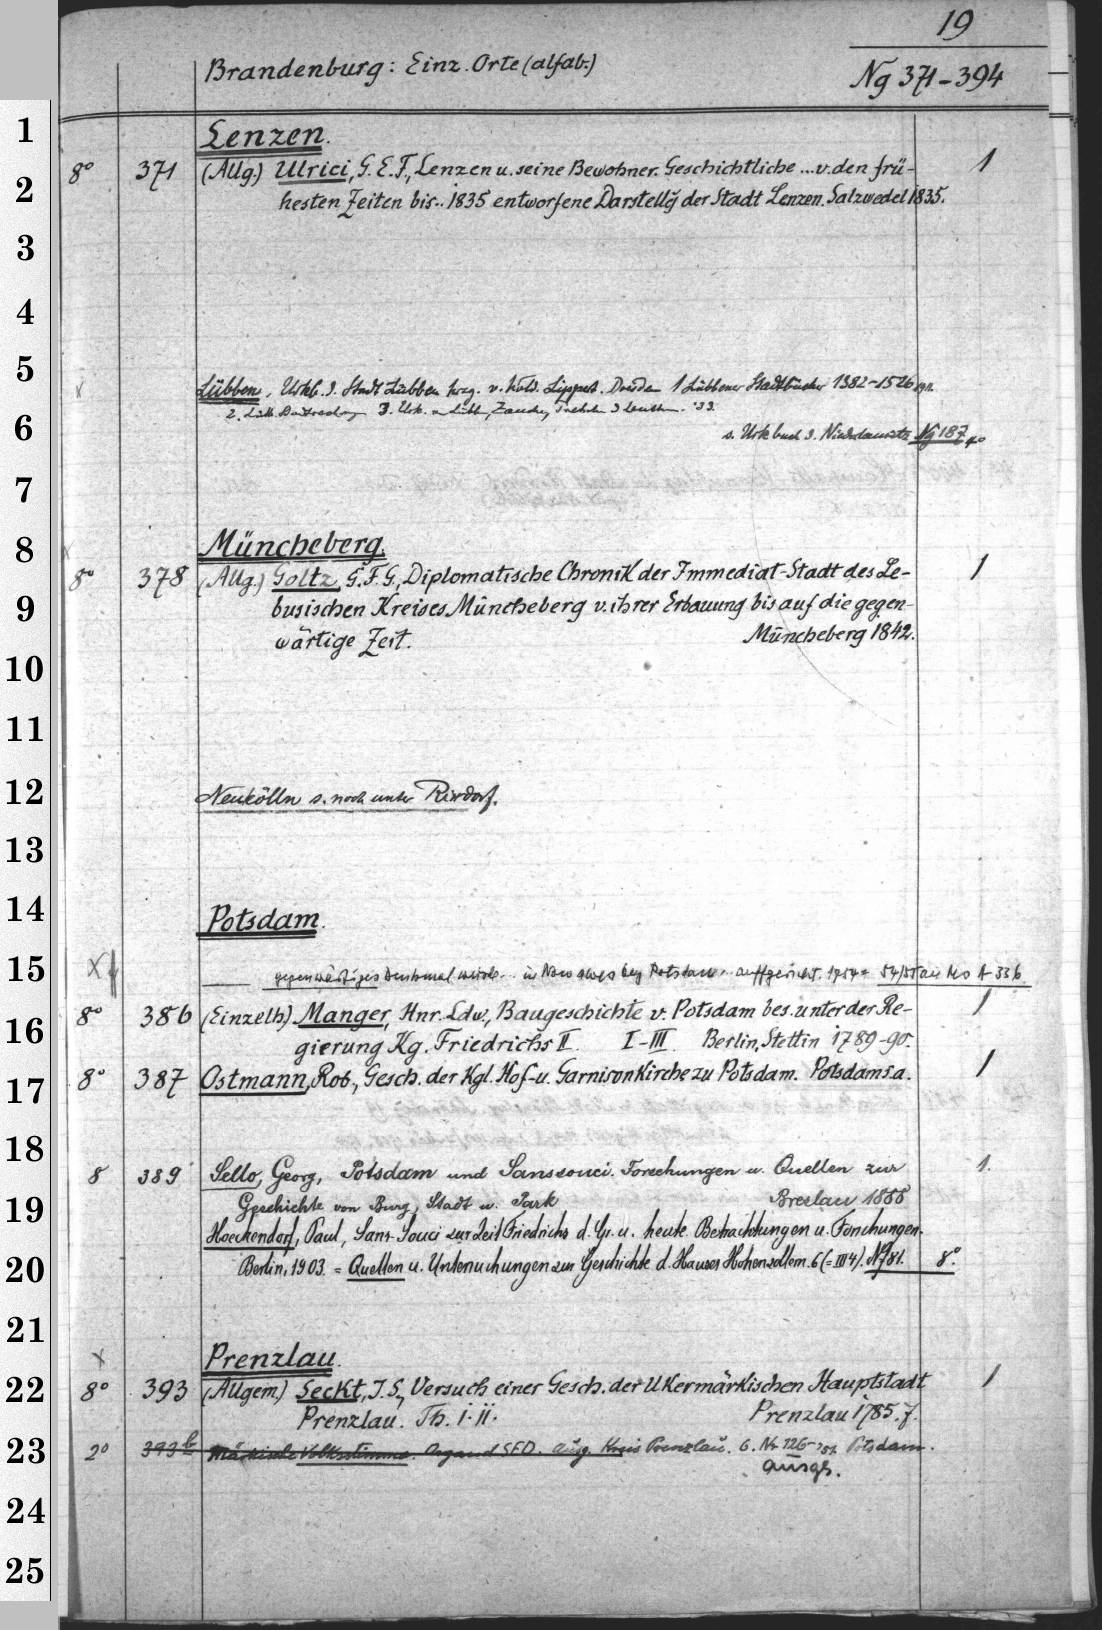 19
Brandenburg: Einz. Orte (alfab.)
Ng 371-394
1
Lenzen.
8° 371 (Allg.) Ulrici, G. E. F., Lenzen u. seine Bewohner. Geschichtliche ... v. den frü- 1
2
hesten Zeiten bis.. 1835 entworfene Darstellg der Stadt Lenzen. Salzwedel 1835.
3
4
5
Lübben, Urkb. d. Stadt Lübben hrsg. v. Wold. Lippert. Dresden 1 Lübbener Stadtbücher 1382-1526
2. 3. Urk. '33.
6
s. Urkbuch d. Niederlausitz Ng 187 4°
7
8
Müncheberg.
8° 378 (Allg.) Goltz, G. F. G., Diplomatische Chronik der Immediat-Stadt des Le- 1
9
busischen Kreises Müncheberg v. ihrer Erbauung bis auf die gegen-
wärtige Zeit. Müncheberg 1842.
10
11
12
Neukölln s. noch unter Rixdorf.
13
14
Potsdam.
15
X gegenwärtiges Denkmal wurde... in Nowawes bey Potsdam.. auffgericht. 1754=
8° 386 (Einzelh). Manger, Hnr. Ldw., Baugeschichte v. Potsdam bes. unter der Re- 1
16
gierung Kg. Friedrichs II. I-III. Berlin, Stettin 1789-90.
17
8° 387 Ostmann, Rob., Gesch. der Kgl. Hof- u. Garnisonkirche zu Potsdam. Potsdam s. a. 1
18
8 389 Sello, Georg, Potsdam und Sanssouci. Forschungen u. Quellen zur 1.
19
Geschichte von Burg, Stadt u. Park Breslau 1888
Hoeckendorf, Paul, Sans-Souci zur Zeit Friedrichs d. Gr. u. heute. Betrachtungen u. Forschungen.
20
Berlin, 1903. = Quellen u. Untersuchungen zur Geschichte d. Hauses Hohenzollern. 6 (= III 4). Ng 781. 8°.
21
X Prenzlau.
22
8° 393 (Allgem.) Seckt, J. S., Versuch einer Gesch. der Ukermärkischen Hauptstadt 1
Prenzlau. Th. I. II. Prenzlau 1785. 7.
23
2° 393b Märkische Volksstimme. Organ d SED. Ausg. Kreis Prenzlau. 6. Nr 126- Potsdam.
ausgs.
24
25